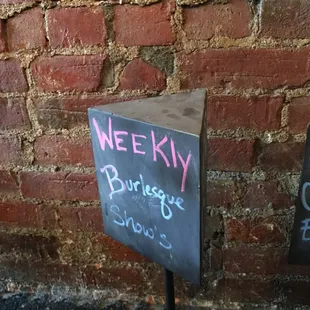 WEEKLY
Burlesque
Show's